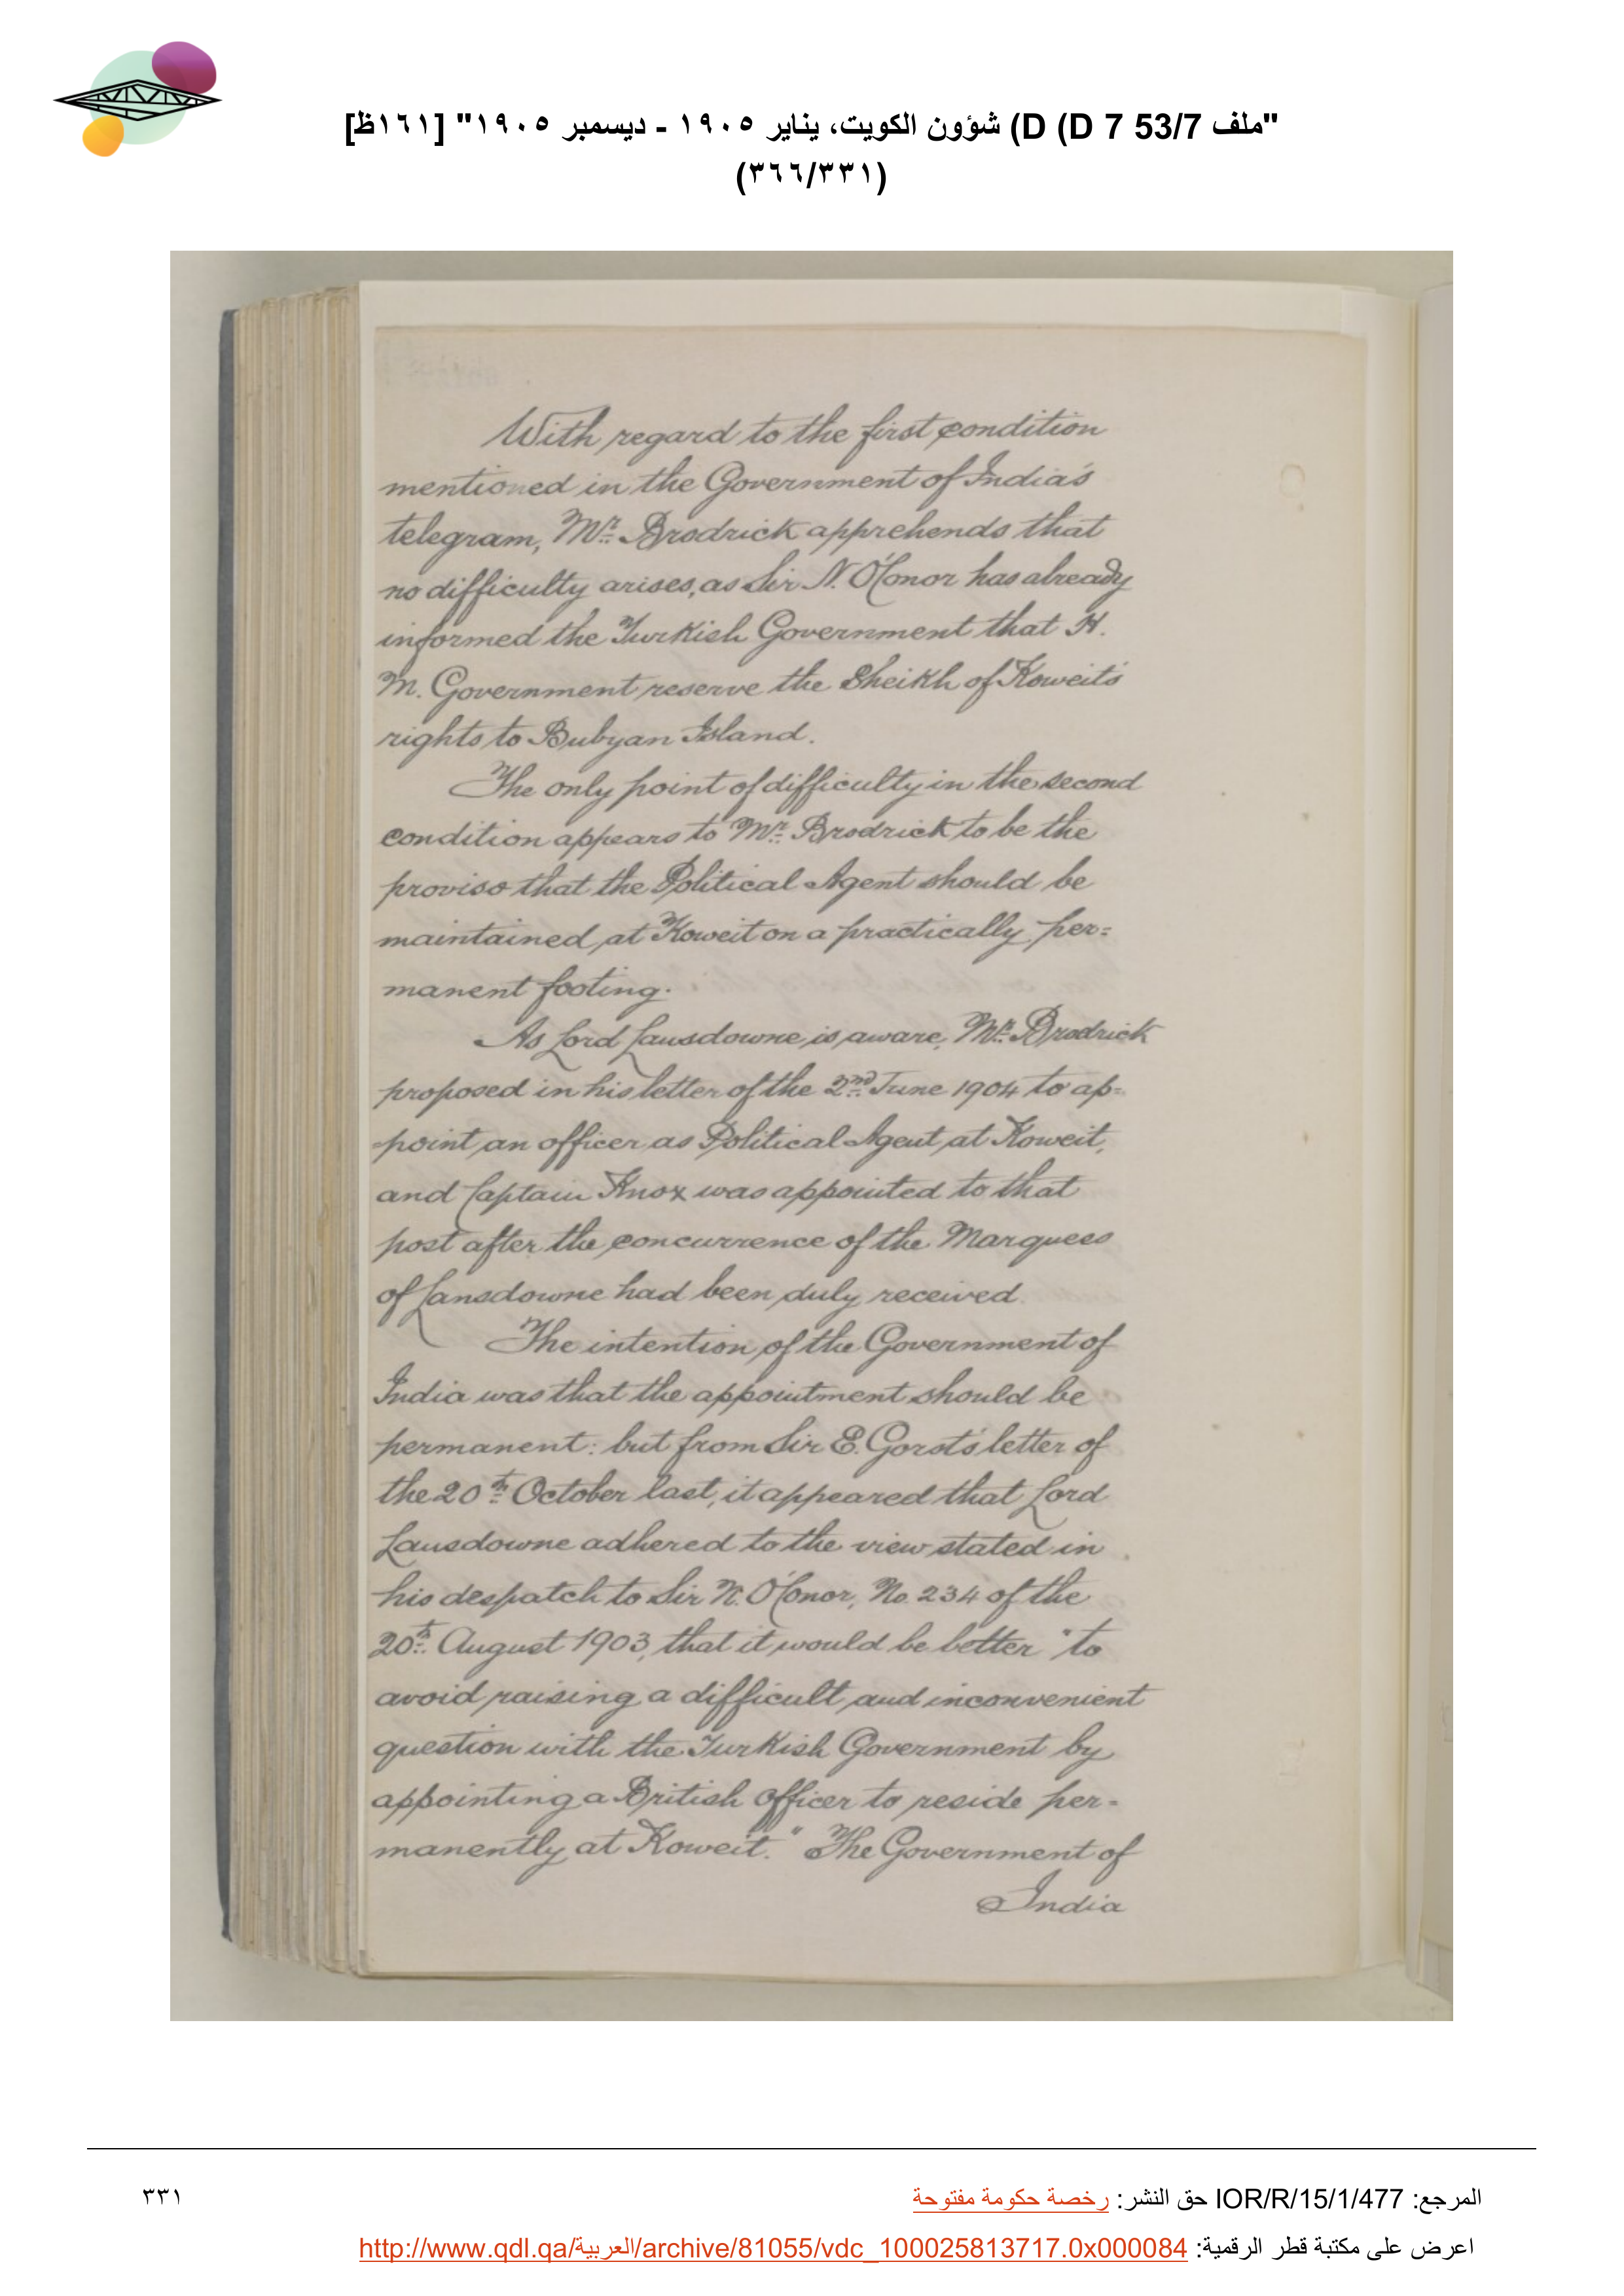 "ملف 53/7 D (D 7) شؤون الكويت، يناير ١٩٠٥ - ديسمبر ١٩٠٥" [١٦١ظ]
(٣٦٦/٣٣١)
With regard to the first condition
mentioned in the Government of India's
telegram, Mr. Brodrick apprehends that
no difficulty arises, as Sir N. O'Conor has already
informed the Turkish Government that H.
M. Government reserve the Sheikh of Koweit's
rights to Bubyan Island.
The only point of difficulty in the second
condition appears to Mr. Brodrick to be the
proviso that the Political Agent should be
maintained at Koweit on a practically per=
manent footing.
As Lord Lansdowne is aware, Mr. Brodrick
proposed in his letter of the 2nd June 1904 to ap=
point an officer as Political Agent at Koweit,
and Captain Knox was appointed to that
post after the concurrence of the Marquess
of Lansdowne had been duly received.
The intention of the Government of
India was that the appointment should be
permanent: but from Sir E. Gorst's letter of
the 20th October last, it appeared that Lord
Lansdowne adhered to the view stated in
his despatch to Sir N. O'Conor, No. 234 of the
20th August 1903, that it would be better "to
avoid raising a difficult and inconvenient
question with the Turkish Government by
appointing a British Officer to reside per-
manently at Koweit." The Government of
India
المرجع: IOR/R/15/1/477 حق النشر: رخصة حكومة مفتوحة
٣٣١
اعرض على مكتبة قطر الرقمية: http://www.qdl.qa/العربية/archive/81055/vdc_100025813717.0x000084